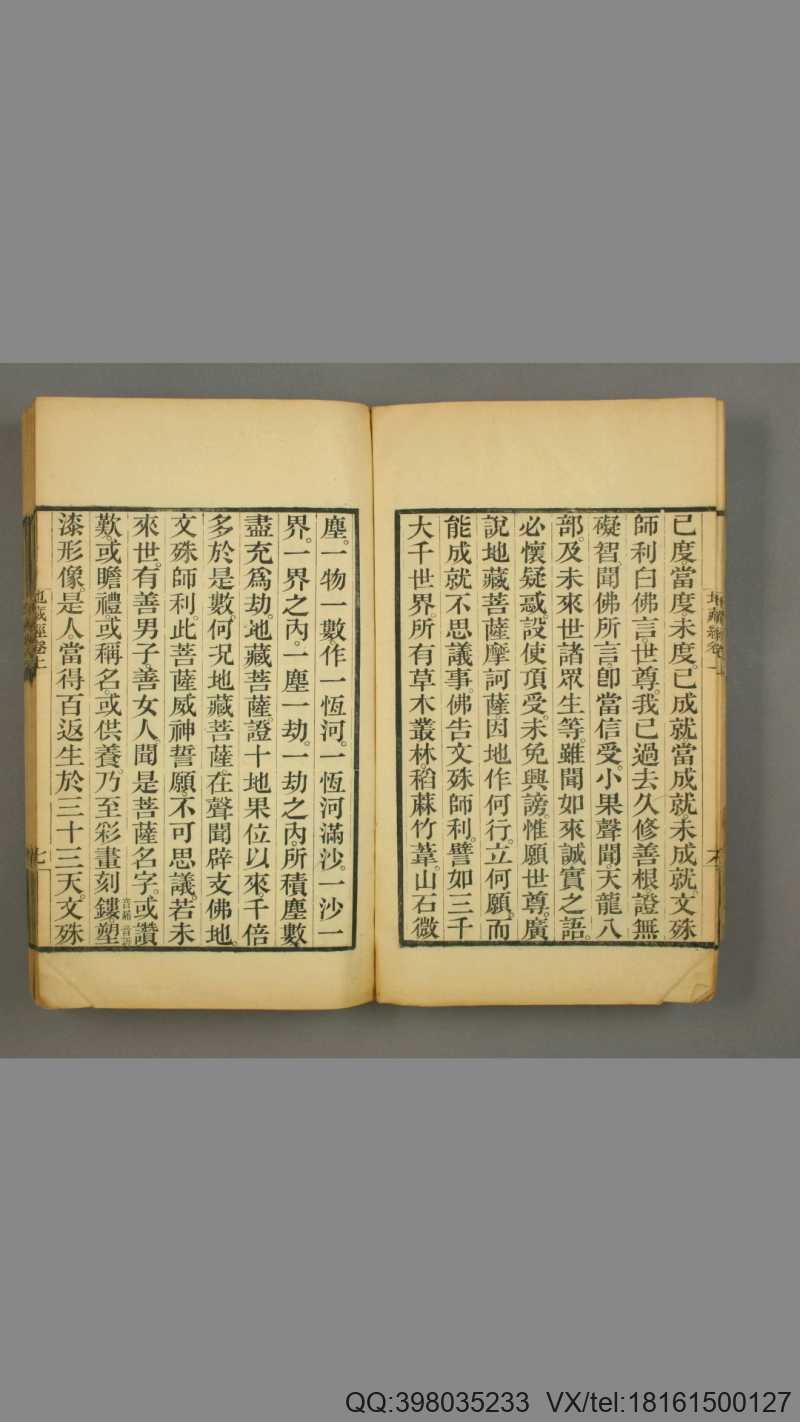 已度當度未度。已成就當成就未成就。文殊
師利白佛言。世尊。我已過去久修善根證無
礙智聞佛所言。卽當信受。小果聲聞。天龍八
部。及未來世諸眾生等。雖聞如來誠實之語。
必懷疑惑。設使頂受。未免興謗。惟願世尊。廣
說地藏菩薩摩訶薩因地作何行。立何願。而
能成就不思議事。佛告文殊師利。譬如三千
大千世界。所有草木叢林。稻蔴竹葦。山石微
塵。一物一數。作一恆河。一恆河滿沙。一沙一
界。一界之內。一塵一劫。一劫之內。所積塵數。
盡充爲劫。地藏菩薩。證十地果位以來。千倍
多於是數。何況地藏菩薩。在聲聞辟支佛地。
文殊師利。此菩薩威神誓願。不可思議。若未
來世。有善男子善女人。聞是菩薩名字。或讚
歎。或瞻禮。或稱名。或供養。乃至彩畫刻鏤塑
漆形像。是人當得百返生於三十三天。文殊
地藏經卷上
七
QQ:398035233 VX/tel:18161500127